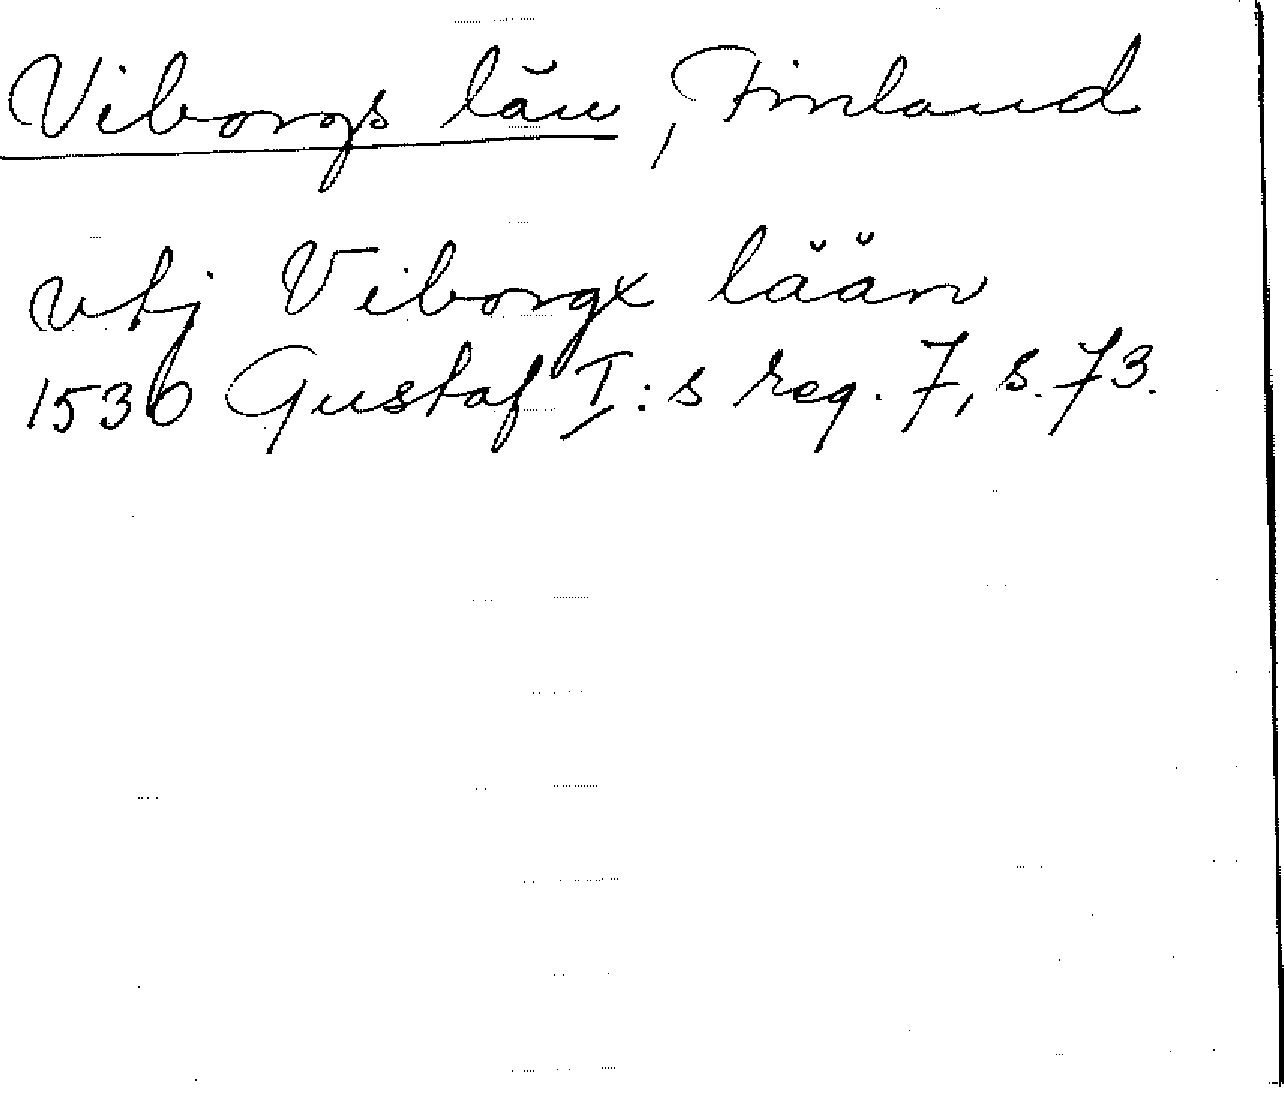 Viborgs län, Finland
vtj Viborgx lään
1536 Gustaf I:s reg. 7, s. 73.